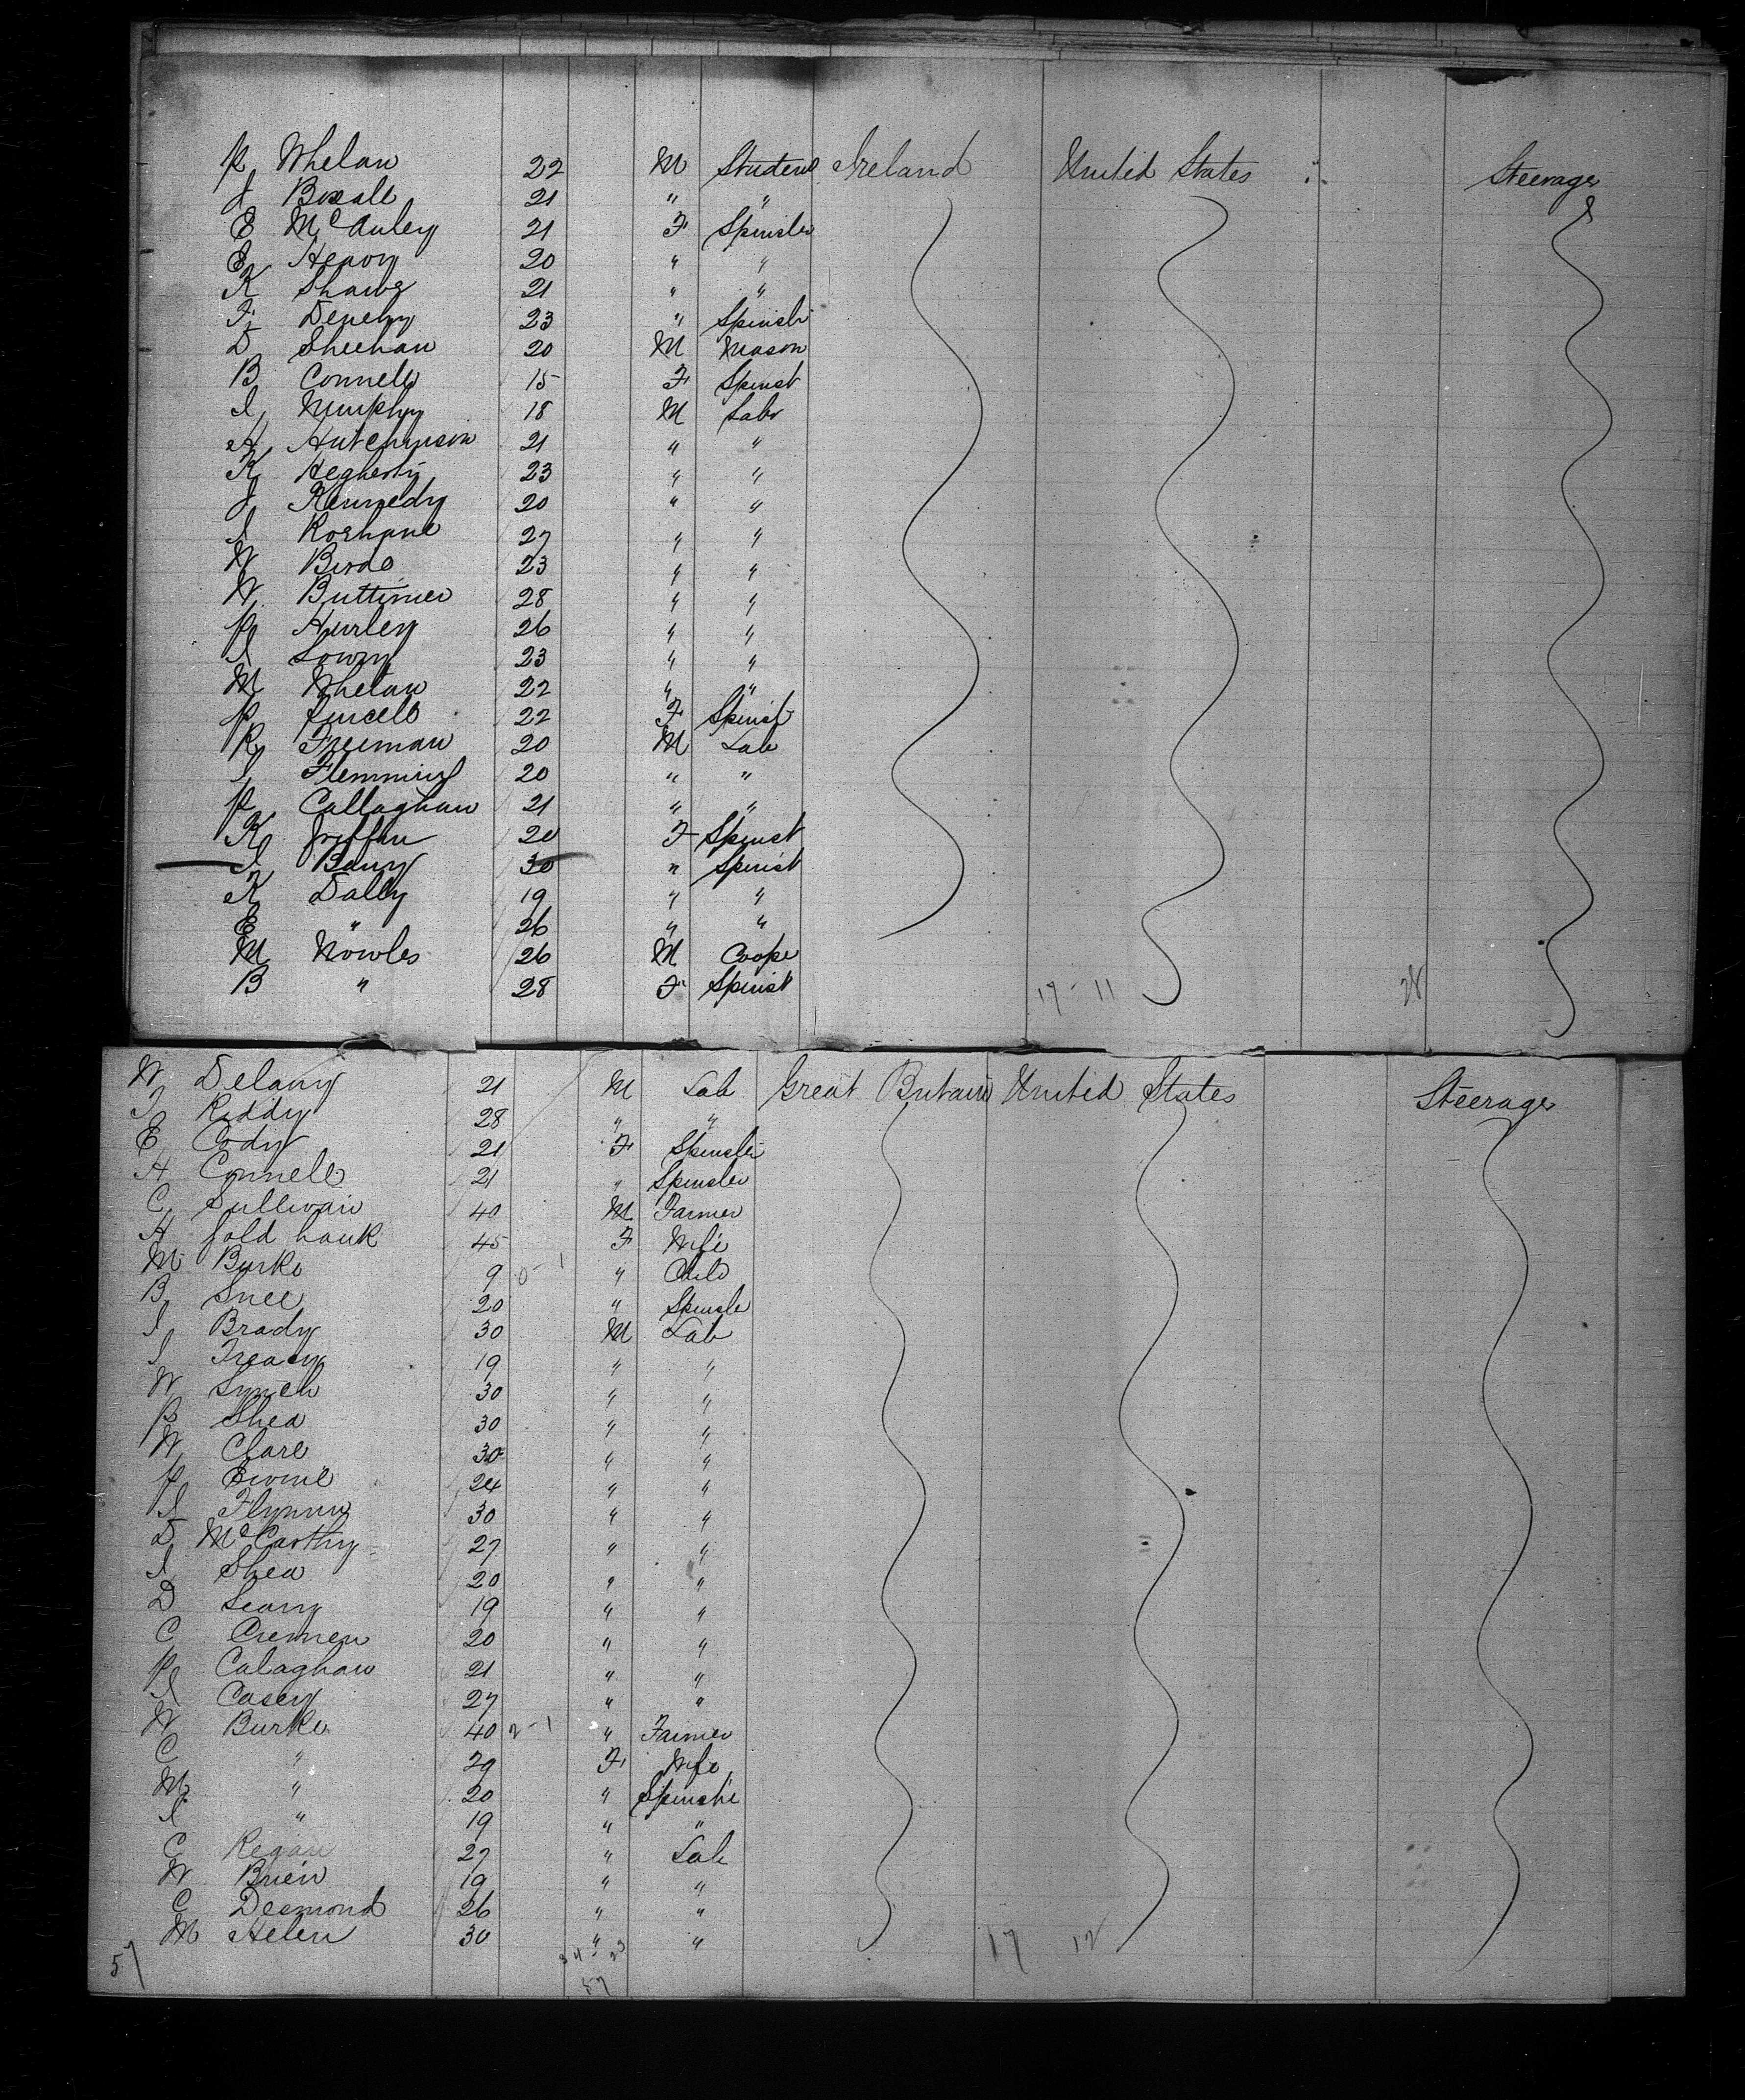 P Whelan 22 M Student Ireland United States Steerage
J Boxall 21 " "
E McAuley 21 F Spinster
E Heavy 20 " "
K 21 " "
F Denehy 23 " Spinstr
D Sheehan 20 M Mason
B Connell 15 F Spinst
J Murphy 18 M Labr
A Hutchinson 21 " "
K Hegherty 23 " "
J Kennedy 20 " "
J 27 " "
W Birds 23 " "
W Buttimer 28 " "
P Hurley 26 " "
J Lowry 23 " "
M Whelan 22 " "
P Purcell 22 F Spinst
R Freeman 20 M Lab
J Flemming 20 " "
P Callaghan 21 " "
K Griffin 20 F Spinst
J Barry 30 " Spinst
K Dally 19 " "
E " 26 " "
M Nowles 26 M Cooper
B " 28 F Spinst 17 - 11 28
W Delany 21 M Lab Great Britain United States Steerage
J Reddy 28 " "
E Cody 21 F Spinster
A Connell 21 " Spinster
C Sullivan 40 M Farmer
A Gold hauk 45 F Wife
M Burke 9 0 - 1 " Child
B Snee 20 " Spinste
J Brady 30 M Lab
J Treacy 19 " "
W Lynch 30 " "
P Shea 30 " "
W Clare 30 " "
P 24 " "
J Flynn 30 " "
D McCarthy 27 " "
J Shea 20 " "
D Leary 19 " "
C Cremen 20 " "
P Calaghan 21 " "
J Casey 27 " "
W Burke 40 2 - 1 " Farmer
C " 29 F Wife
M " 20 " Spinste
J " 19 " "
C Regan 27 " Lab
W Brien 19 " "
C Desmond 26 " "
M Helen 30 " "
57 34 - 23 17 12
57